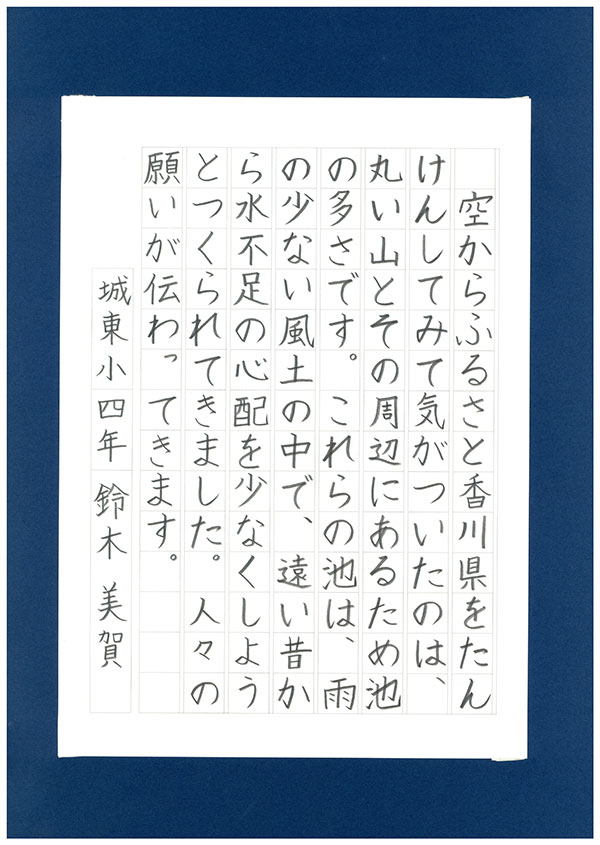 空からふるさと香川県をたん
けんしてみて気がついたのは、
丸い山とその周辺にあるため池
の多さです。これらの池は、雨
の少ない風土の中で、遠い昔か
ら水不足の心配を少なくしよう
とつくられてきました。人々の
願いが伝わってきます。
城東小四年 鈴木 美賀